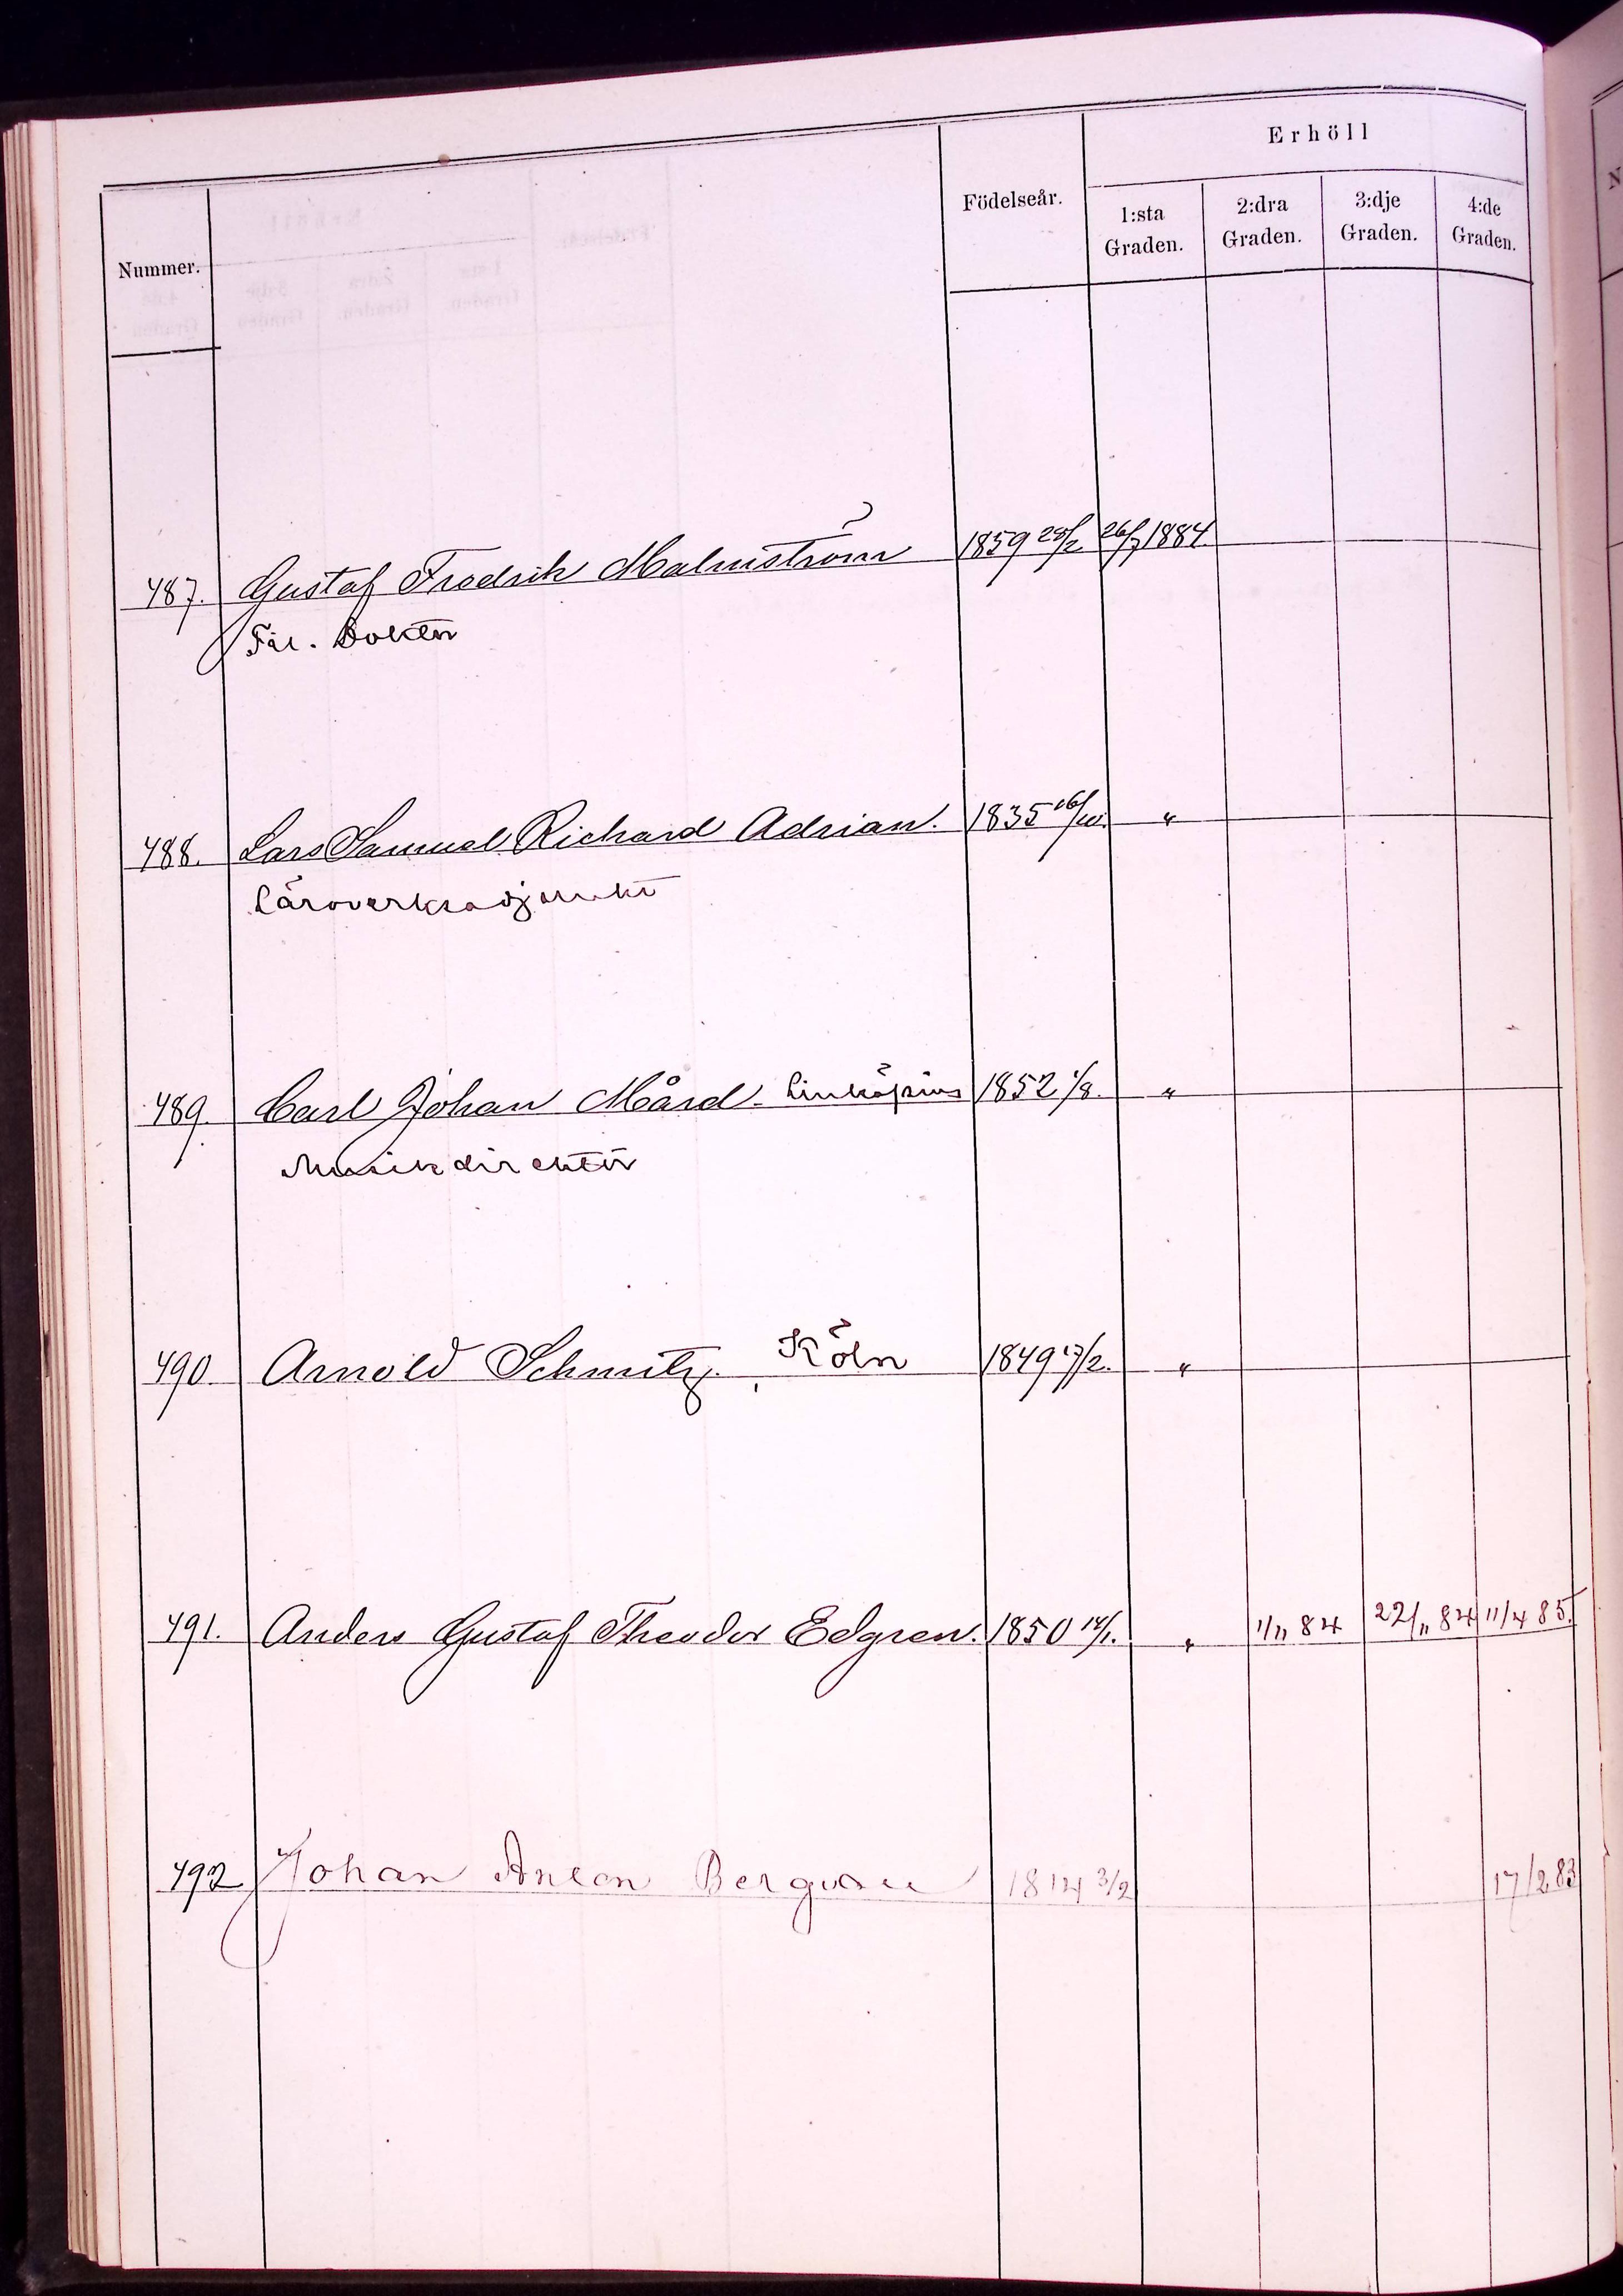 Erhöll
Nummer. Födelseår. 1:sta Graden. 2:dra Graden. 3:dje Graden. 4:de Graden.
487. Gustaf Fredrik Malmström 1859 28/2 26/7 1884.
Fil. Doktor
488. Lars Samuel Richard Adrian. 1835 16/10. "
Läroverksadjunkt
489. Carl Johan Mård. Linköping 1852 1/8. "
Musikdirektör
490. Arnold Schmitz, Köln 1849 17/2. "
491. Anders Gustaf Theodor Edgren. 1850 14/1. " 1/11 84 22/11 84 11/4 85.
492 Johan Anton Bergvall 3/2 17/2 83